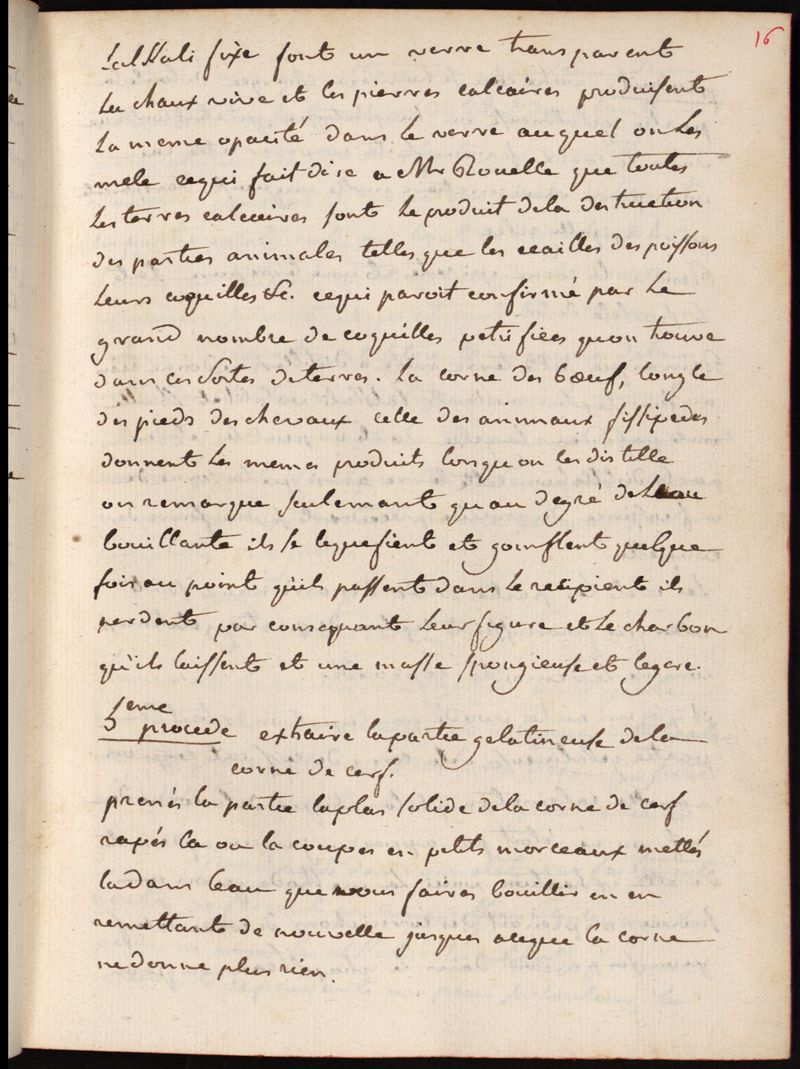 16
l'alkali fixe font un verre transparent
La chaux vive et les pierres calcaires produisent
la meme opacité dans le verre auquel on les
mele cequi fait dire a Mr Rouelle que toutes
les terres calcaires sont le produit dela destruction
des parties animales telles que les ecailles des poissons
leurs coquilles &c. cequi paroit confirmé par le
grand nombre de coquilles petrifiées quon trouve
dans ces sortes de terres. la corne des bœuf, longle
des pieds des chevaux celle des animaux fissipedes
donnent les memes produits lorsquon les distille
on remarque seulemant quau degré de leau
bouillante ils se liquefient et gonflent quelque
fois au point quils passent dans le recipient ils
perdent par consequant leur figure et le charbon
quils laissent et une masse spongieuse et legere.
5eme procede extraire la partie gelatineuse de la
corne de cerf.
prenés la partie la plus solide de la corne de cerf
rapés la ou la coupes en petits morceaux mettés
la dans leau que vous faires bouillir en en
remettant de nouvelle jusques aceque la corne
ne donne plus rien.